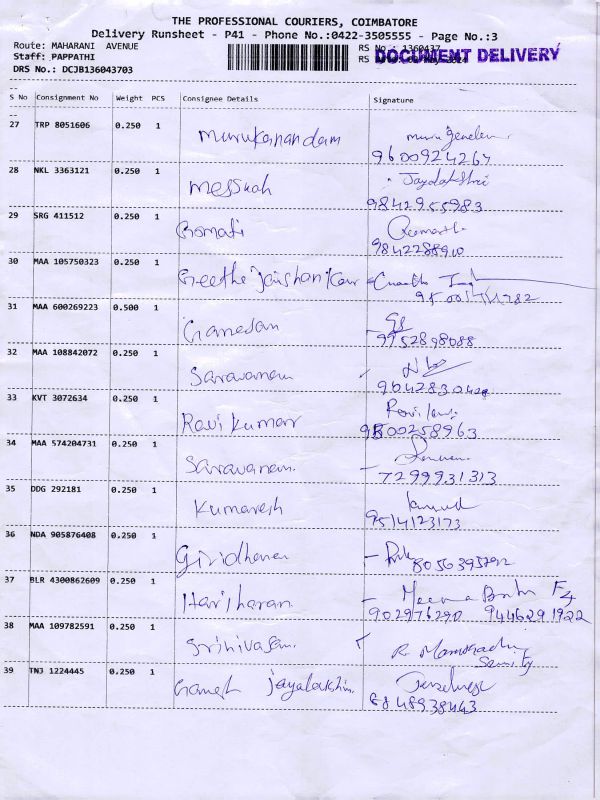 THE PROFESSIONAL COURIERS, COIMBATORE
Delivery Runsheet - P41 - Phone No.:0422-3505555 - Page No.:3
Route: MAHARANI AVENUE
RS No.: 1360437
Staff: PAPPATHI
RS
DOCUMENT DELIVERY
DRS No.: DCJB136043703
S No Consignment No Weight PCS Consignee Details Signature
27 TRP 8051606 0.250 1 Murukanandam
9600924267
28 NKL 3363121 0.250 1 Messuah Jayalakshmi
9842955983
29 SRG 411512 0.250 1 Gomati
9842288910
30 MAA 105750323 0.250 1 Geetha Jaishankar
31 MAA 600269223 0.500 1 Ganesan
9952898088
32 MAA 108842072 0.250 1 Saravanan
33 KVT 3072634 0.250 1 Ravi Kumar
34 MAA 574204731 0.250 1 Saravanan.
7299931313
35 DDG 292181 0.250 1 Kumaresh
9514123173
36 NDA 905876408 0.250 1 Giridharan
37 BLR 4300862609 0.250 1 Hariharan Meena F4
902976290 9446291922
38 MAA 109782591 0.250 1 Srinivasan.
Security
39 TNJ 1224445 0.250 1 Ganesh Jayalakshmi
8848938443